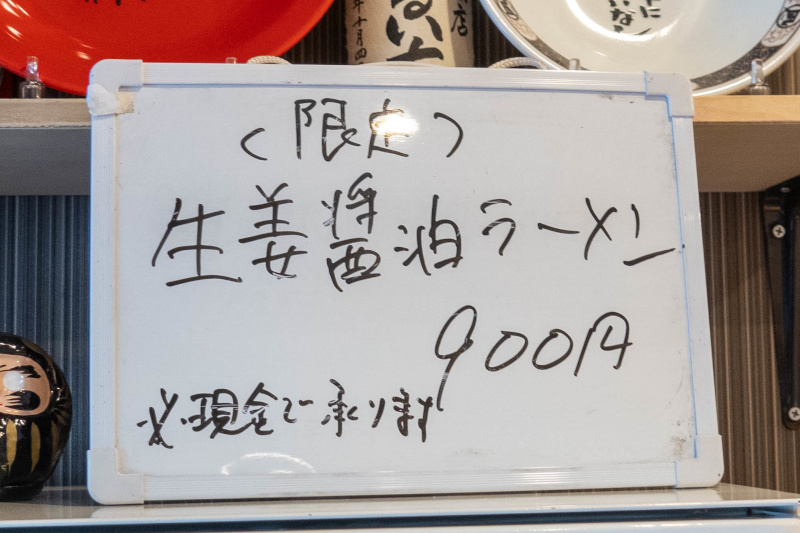 (限定)
生姜醤油ラーメン
900円
※現金で承ります